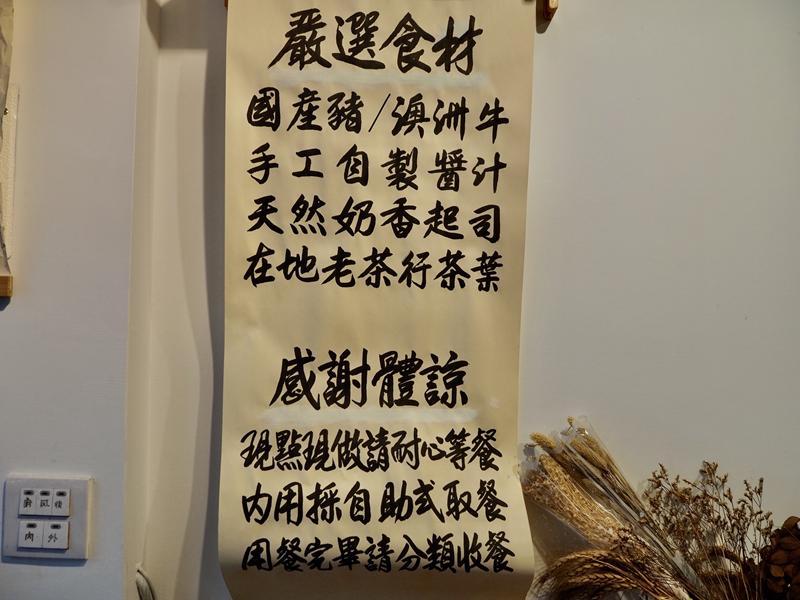 嚴選食材
國產豬/澳洲牛
手工自製醬汁
天然奶香起司
在地老茶行茶葉
感謝體諒
現點現做請耐心等餐
內用採自助式取餐
用餐完畢請分類收餐
內 外